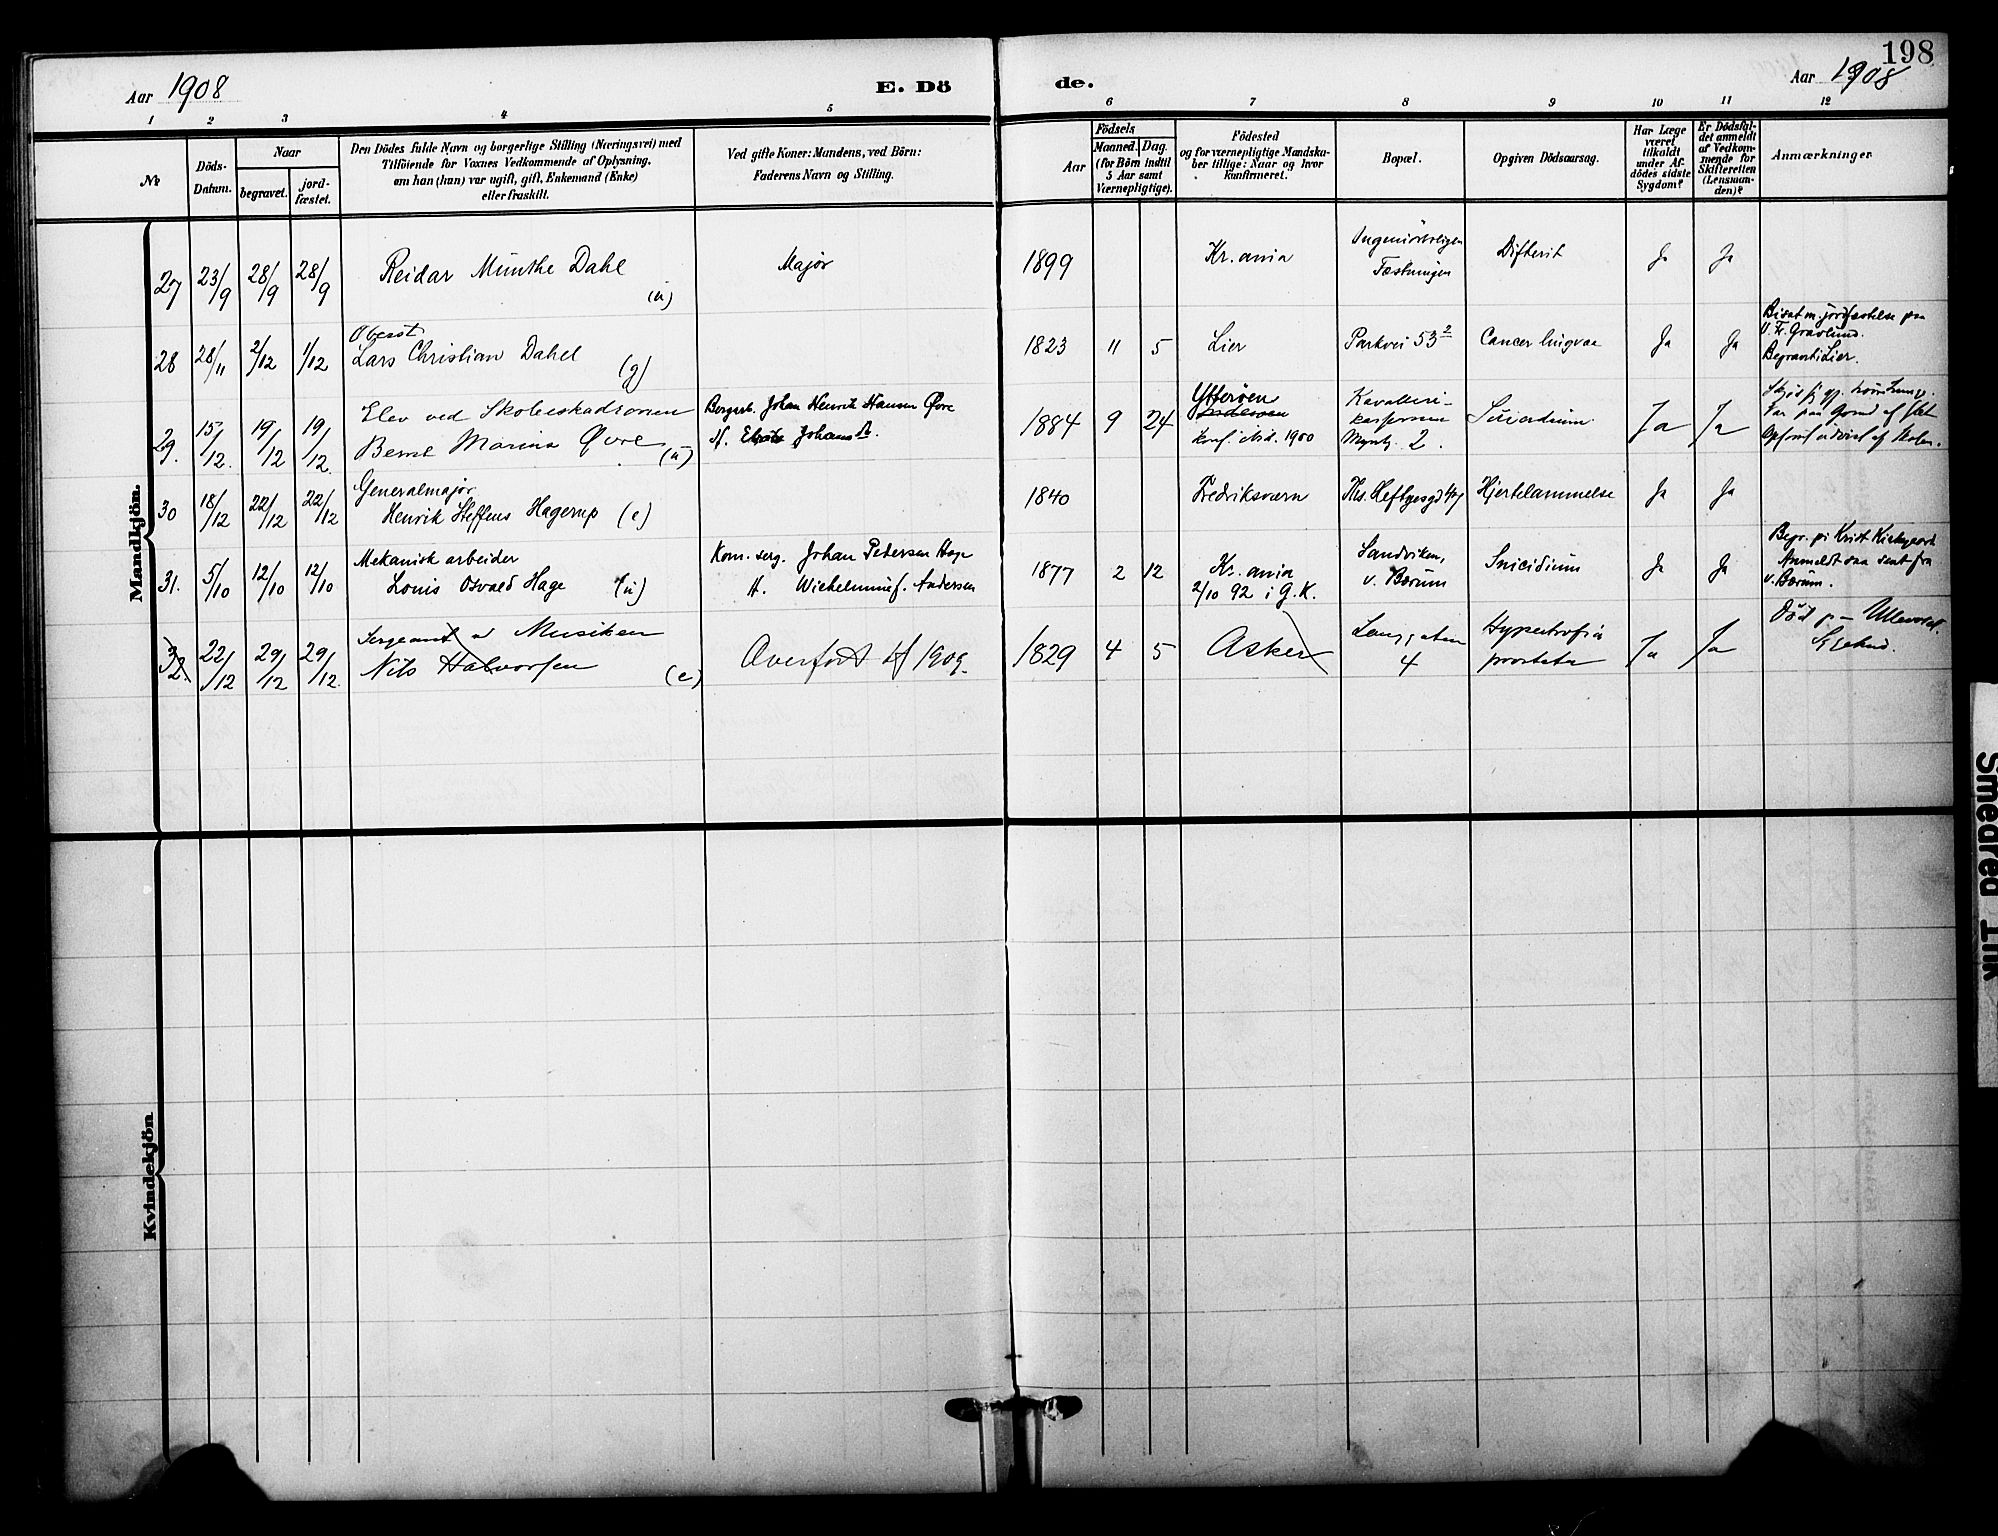 198
Aar 1908
E. Dö
de.
Aar 1908
1 2 3 4 5 6 7 8 9 10 11 12
№
Döds-
Datum.
Naar
begravet.
jord-
fæstet.
Den Dödes fulde Navn og borgerlige Stilling (Næringsvei) med
Tilföiende for Voxnes Vedkommende af Oplysning,
om han (hun) var ugift, gift, Enkemand (Enke)
eller fraskilt.
Ved gifte Koner: Mandens, ved Börn:
Faderens Navn og Stilling.
Aar
Födsels
Maaned. Dag.
(for Börn indtil
5 Aar samt
Værnepligtige).
Födested
og for værnepligtige Mandska-
ber tillige: Naar og hvor
konfirmeret.
Bopæl.
Opgiven Dödsaarsag.
Har Læge
været
tilkaldt
under Af-
dödes sidste
Sygdom?
Er Dödsfal-
det anmeldt
af Vedkom-
mende for
Skifteretten
(Lensman-
den)?
Anmærkninger
Mandkjön.
27 23/9 28/9 28/9 Reidar Munthe Dahl (u) Major 1899 Kr.ania Ingeniörboligen Fæstningen Difterit Ja Ja
28 28/11 2/12 1/12 Oberst Lars Christian Dahl (g) 1823 11 5 Lier Parkvei 53² Cancer lingvae Ja Ja
Bisat m. jordfæstelse paa
V. Fr. Gravlund.
Begravet i Lier.
29. 15/12. 19/12 19/12. Elev ved Skoleeskadronen Bernt Marius Øvre (u) Johan Henrik Hansen Øvre 1884 9 24 Ytterøen Inderøen konf. 1900 Kavalleri- kasernen 2. Suicidium Ja Ja
30 18/12 22/12 22/12 Generalmajor Henrik Steffens Hagerup (e) 1840 Fredriksværn Ths. Heftyesgd Hjertelammelse Ja Ja
31. 5/10 12/10 12/10 Mekanisk arbeider Louis Osvald Hage (u) Kom. serg. Johan Petersen Hage H. Wilhelmine f. Andersen 1877 2 12 Kr.ania 2/10 92 i G.K. Sandviken, V. Bærum Suicidium Ja Ja
Begr. p. Krist Kirkegaard
Anmeldt saa sent fra
V. Bærum.
32. 22/12 29/12 29/12. Sergeant v Musiken Nils Halvorsen (e) Overfört til 1909. 1829 4 5 Asker Langgaten 4 Hypertrofia prostata Ja Ja
Död p- Ullevold
Sygehus.
Kvindekjön
Smeared Ink